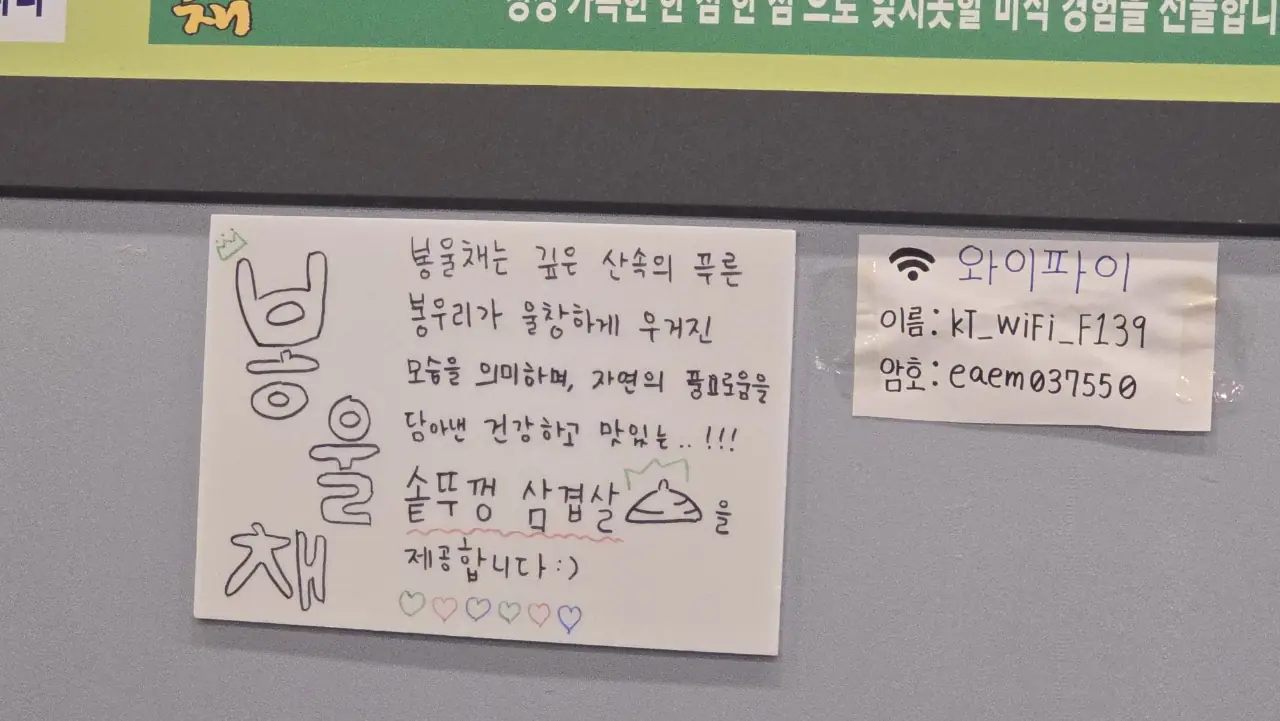 채
정성 가득한 한 점 한 점으로 잊지못할 미식 경험을 선물합니
봉울채
봉울채는 깊은 산속의 푸른
봉우리가 울창하게 우거진
모습을 의미하며, 자연의 풍요로움을
담아낸 건강하고 맛있는..!!!
솥뚜껑 삼겹살을
제공합니다:)
와이파이
이름: KT_WiFi_F139
암호: eaem037550